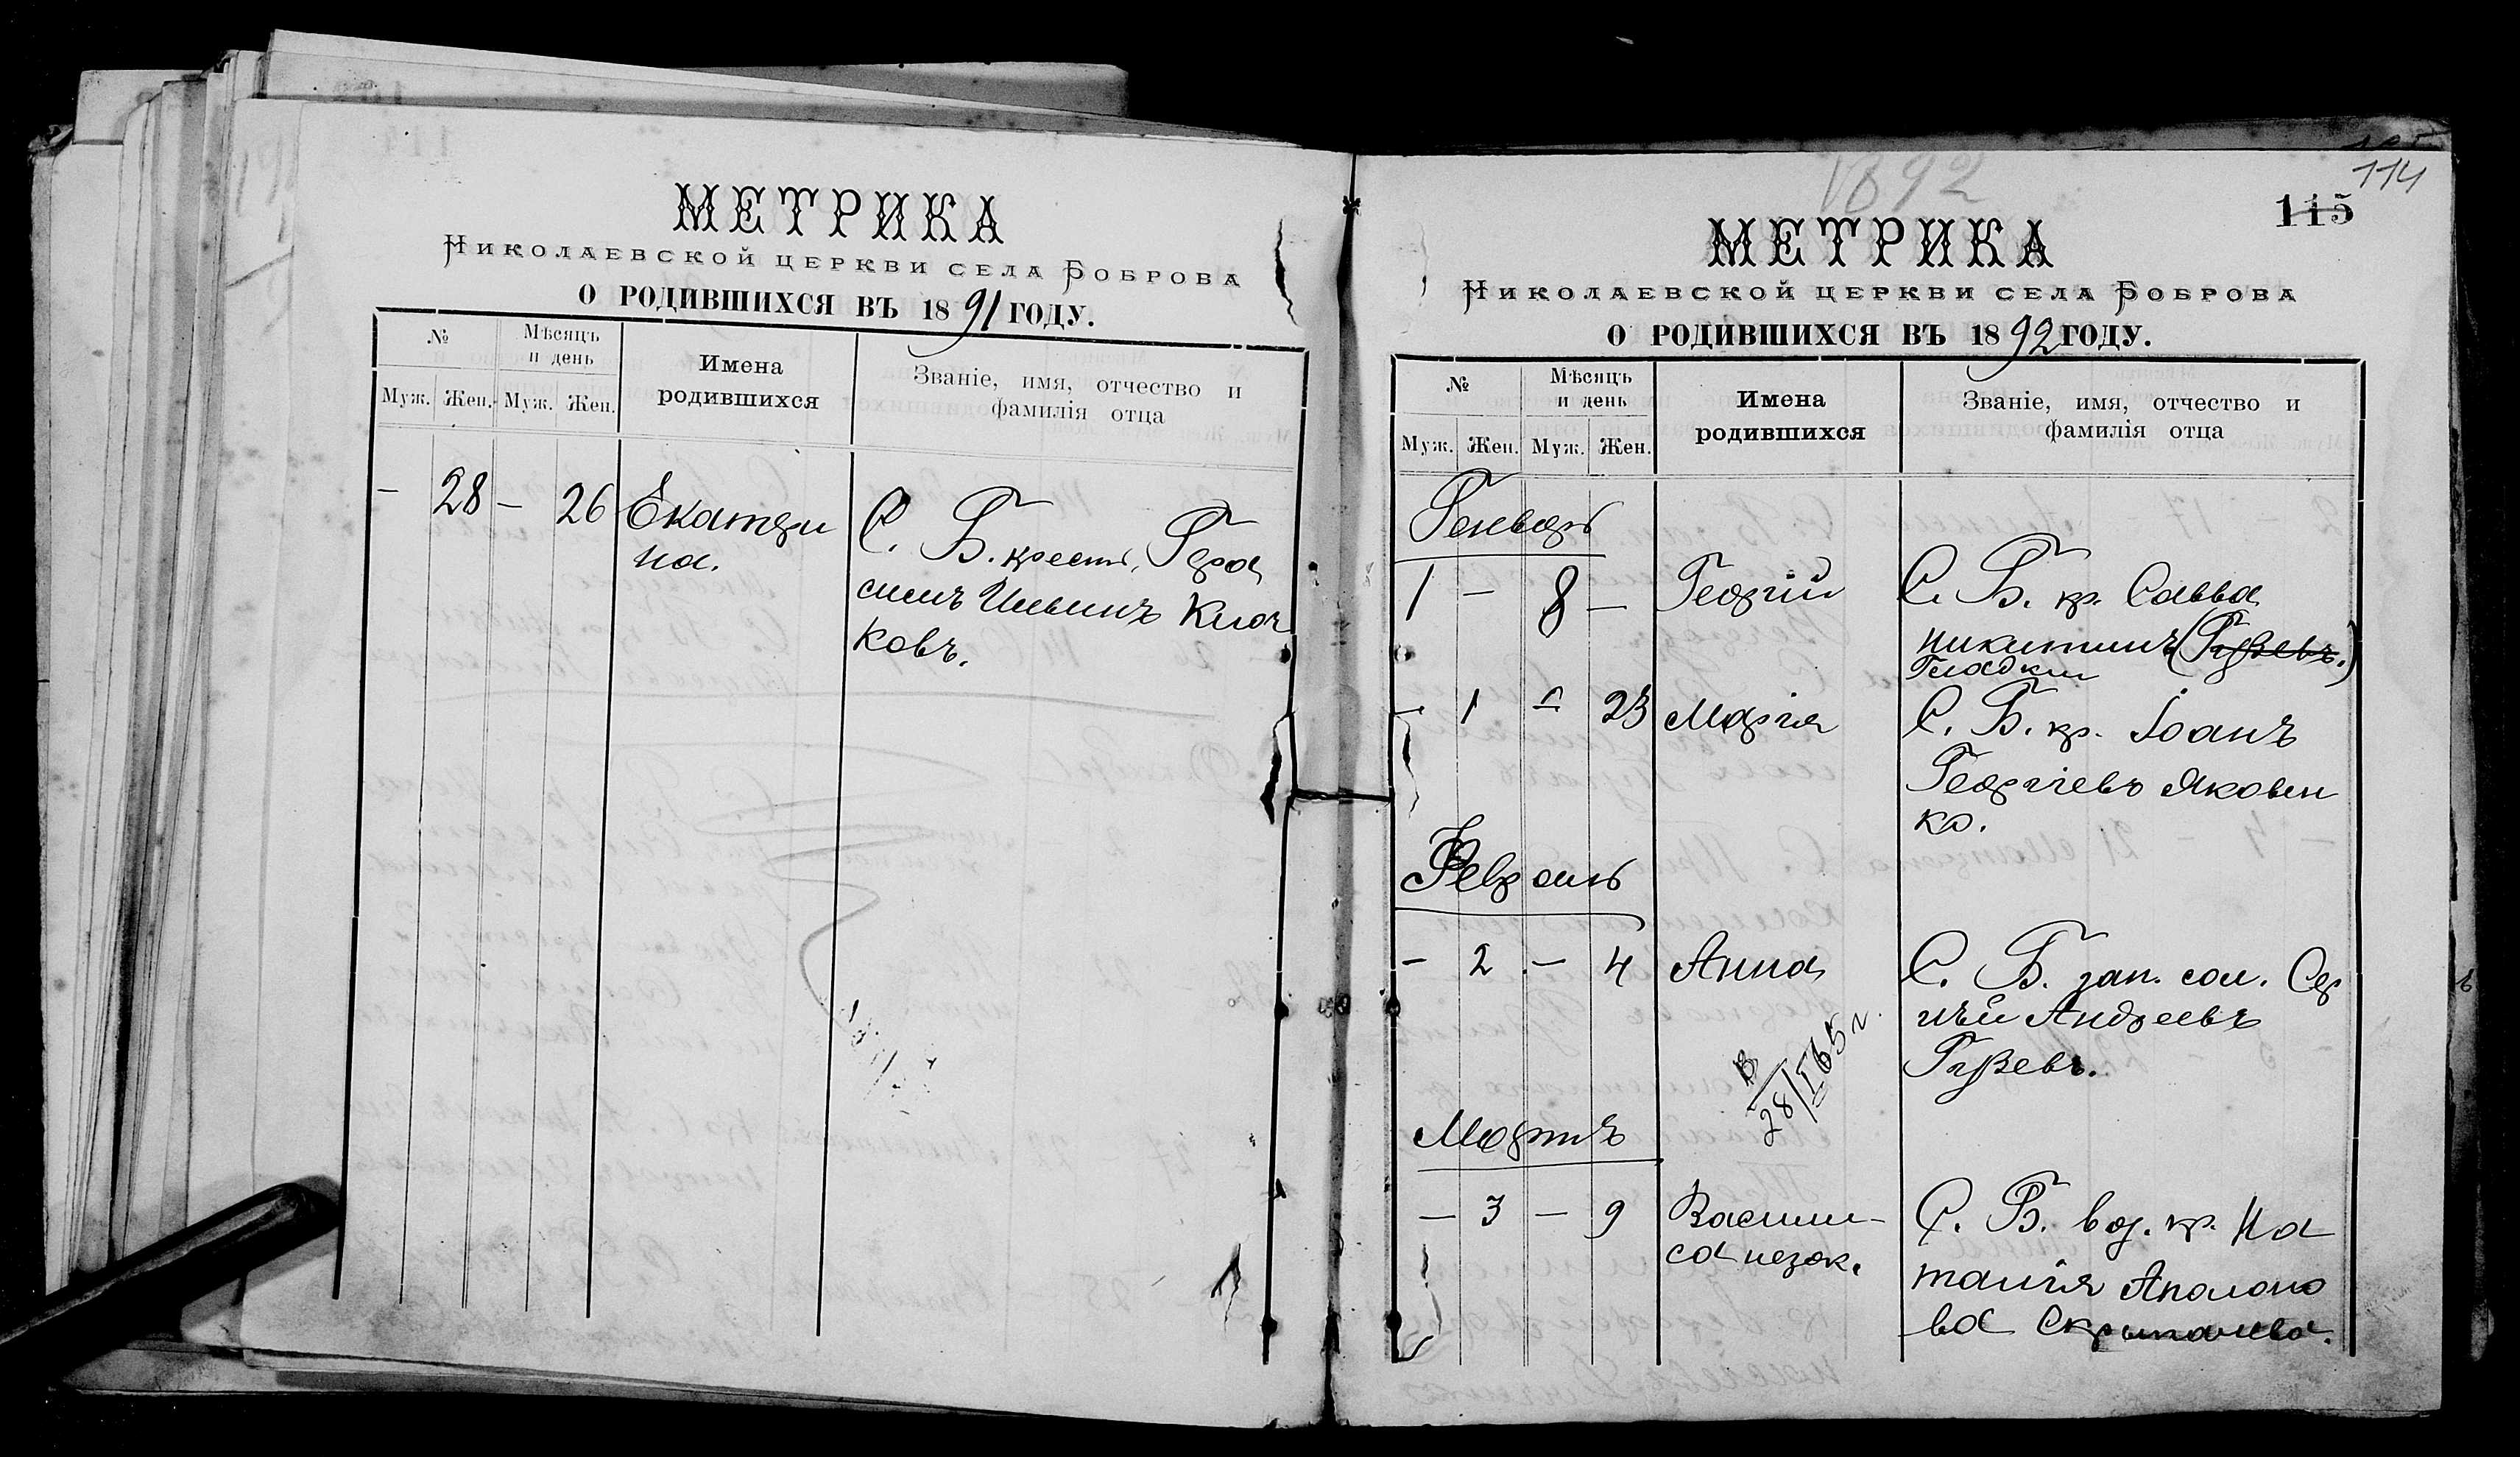 МЕТРИКА
НИКОЛАЕВСКОЙ ЦЕРКВИ СЕЛА БОБРОВА
О РОДИВШИХСЯ ВЪ 1891 ГОДУ.
№
Мѣсяцъ и день
Имена родившихся
Званіе, имя, отчество и фамилія отца
Муж. Жен. Муж. Жен.
– 28 – 26 Екатери
на.
С. Б. крест. Гера
симъ Ильинъ Клоч
ковъ.
1892
114
115
МЕТРИКА
НИКОЛАЕВСКОЙ ЦЕРКВИ СЕЛА БОБРОВА
О РОДИВШИХСЯ ВЪ 1892 ГОДУ.
№
Мѣсяцъ и день
Имена родившихся
Званіе, имя, отчество и фамилія отца
Муж. Жен. Муж. Жен.
Генварь
1 – 8 – Георгій
С. Б. кр. Савва
Никитинъ (Гузевъ.)
Гладкий
– 1 – 23 Марія
С. Б. кр. Іоанъ
Георгіевъ Яковен
ко.
Февраль
– 2 – 4 Анна
С. Б. зап. сол. Сер
гѣй Андреевъ
Гузевъ.
В
28/I 65 г.
Мартъ
– 3 – 9 Васили-
са незак.
С. Б. вод. кр. На
талія Аполоно
ва